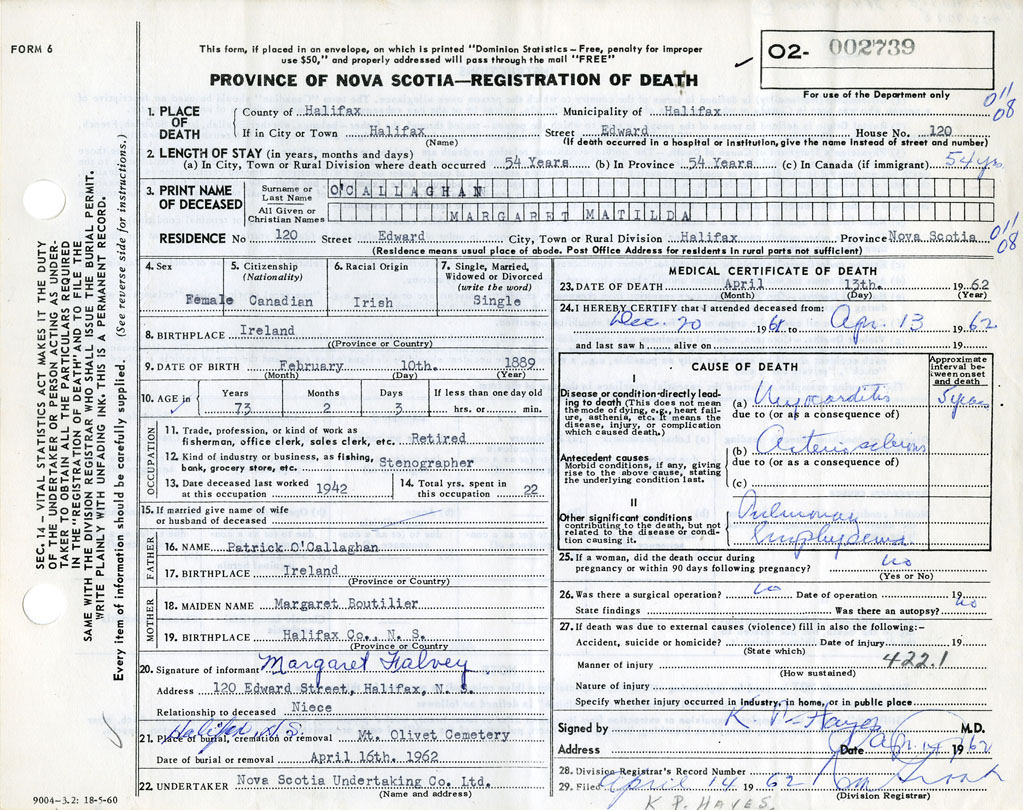 FORM 6
This form, if placed in an envelope, on which is printed "Dominion Statistics – Free, penalty for improper
use $50," and properly addressed will pass through the mail "FREE"
PROVINCE OF NOVA SCOTIA—REGISTRATION OF DEATH
02- 002739
For use of the Department only
011
08
1. PLACE OF DEATH
County of Halifax Municipality of Halifax
If in City or Town Halifax Street Edward House No. 120
(Name) (If death occurred in a hospital or institution, give the name instead of street and number)
2. LENGTH OF STAY (in years, months and days)
(a) In City, Town or Rural Division where death occurred 54 Years (b) In Province 54 Years (c) In Canada (if immigrant) 54 yrs
3. PRINT NAME OF DECEASED
Surname or Last Name O'CALLAGHAN
All Given or Christian Names MARGARET MATILDA
RESIDENCE No 120 Street Edward City, Town or Rural Division Halifax Province Nova Scotia
011
08
(Residence means usual place of abode. Post Office Address for residents in rural parts not sufficient)
4. Sex
Female
5. Citizenship
(Nationality)
Canadian
6. Racial Origin
Irish
7. Single, Married, Widowed or Divorced
(write the word)
Single
8. BIRTHPLACE Ireland
((Province or Country)
9. DATE OF BIRTH February 10th. 1889
(Month) (Day) (Year)
10. AGE in
Years Months Days If less than one day old
73 2 3 hrs. or min.
OCCUPATION
11. Trade, profession, or kind of work as
fisherman, office clerk, sales clerk, etc. Retired
12. Kind of industry or business, as fishing,
bank, grocery store, etc. Stenographer
13. Date deceased last worked
at this occupation 1942
14. Total yrs. spent in
this occupation 22
15. If married give name of wife
or husband of deceased
FATHER
16. NAME Patrick O'Callaghan
17. BIRTHPLACE Ireland
(Province or Country)
MOTHER
18. MAIDEN NAME Margaret Boutilier
19. BIRTHPLACE Halifax Co., N. S.
(Province or Country
20. Signature of informant Margaret Halvey
Address 120 Edward Street, Halifax, N. S.
Relationship to deceased Niece
Halifax, N.S.
21. Place of burial, cremation or removal Mt. Olivet Cemetery
Date of burial or removal April 16th. 1962
22. UNDERTAKER Nova Scotia Undertaking Co. Ltd.
(Name and address)
MEDICAL CERTIFICATE OF DEATH
23. DATE OF DEATH April 13th. 1962
(Month) (Day) (Year)
24. I HEREBY CERTIFY that I attended deceased from:
Dec. 20 1961 to Apr. 13 1962
and last saw h alive on 19
CAUSE OF DEATH
Approximate interval between onset and death
I
Disease or condition directly leading to death (This does not mean the mode of dying, e.g., heart failure, asthenia, etc. It means the disease, injury, or complication which caused death.)
(a) Myocarditis 5 years
due to (or as a consequence of)
Antecedent causes
Morbid conditions, if any, giving rise to the above cause, stating the underlying condition last.
(b) Arterio sclerosis
due to (or as a consequence of)
(c)
II
Other significant conditions
contributing to the death, but not related to the disease or condition causing it.
Pulmonary
Emphysema
25. If a woman, did the death occur during
pregnancy or within 90 days following pregnancy? no
(Yes or No)
26. Was there a surgical operation? no Date of operation 19
State findings Was there an autopsy? no
27. If death was due to external causes (violence) fill in also the following:–
Accident, suicide or homicide? Date of injury 19
(State which)
Manner of injury 422.1
(How sustained)
Nature of injury
Specify whether injury occurred in industry, in home, or in public place
Signed by K P Hayes M.D.
Address Date Apr. 14 1962
28. Division Registrar's Record Number
29. Filed April 14 1962
(Division Registrar)
K P. HAYES.
SEC. 14 – VITAL STATISTICS ACT MAKES IT THE DUTY
OF THE UNDERTAKER OR PERSON ACTING AS UNDER-
TAKER TO OBTAIN ALL THE PARTICULARS REQUIRED
IN THE "REGISTRATION OF DEATH" AND TO FILE THE
SAME WITH THE DIVISION REGISTRAR WHO SHALL ISSUE THE BURIAL PERMIT.
WRITE PLAINLY WITH UNFADING INK. THIS IS A PERMANENT RECORD.
Every item of information should be carefully supplied. (See reverse side for instructions.)
9004–3.2: 18-5-60